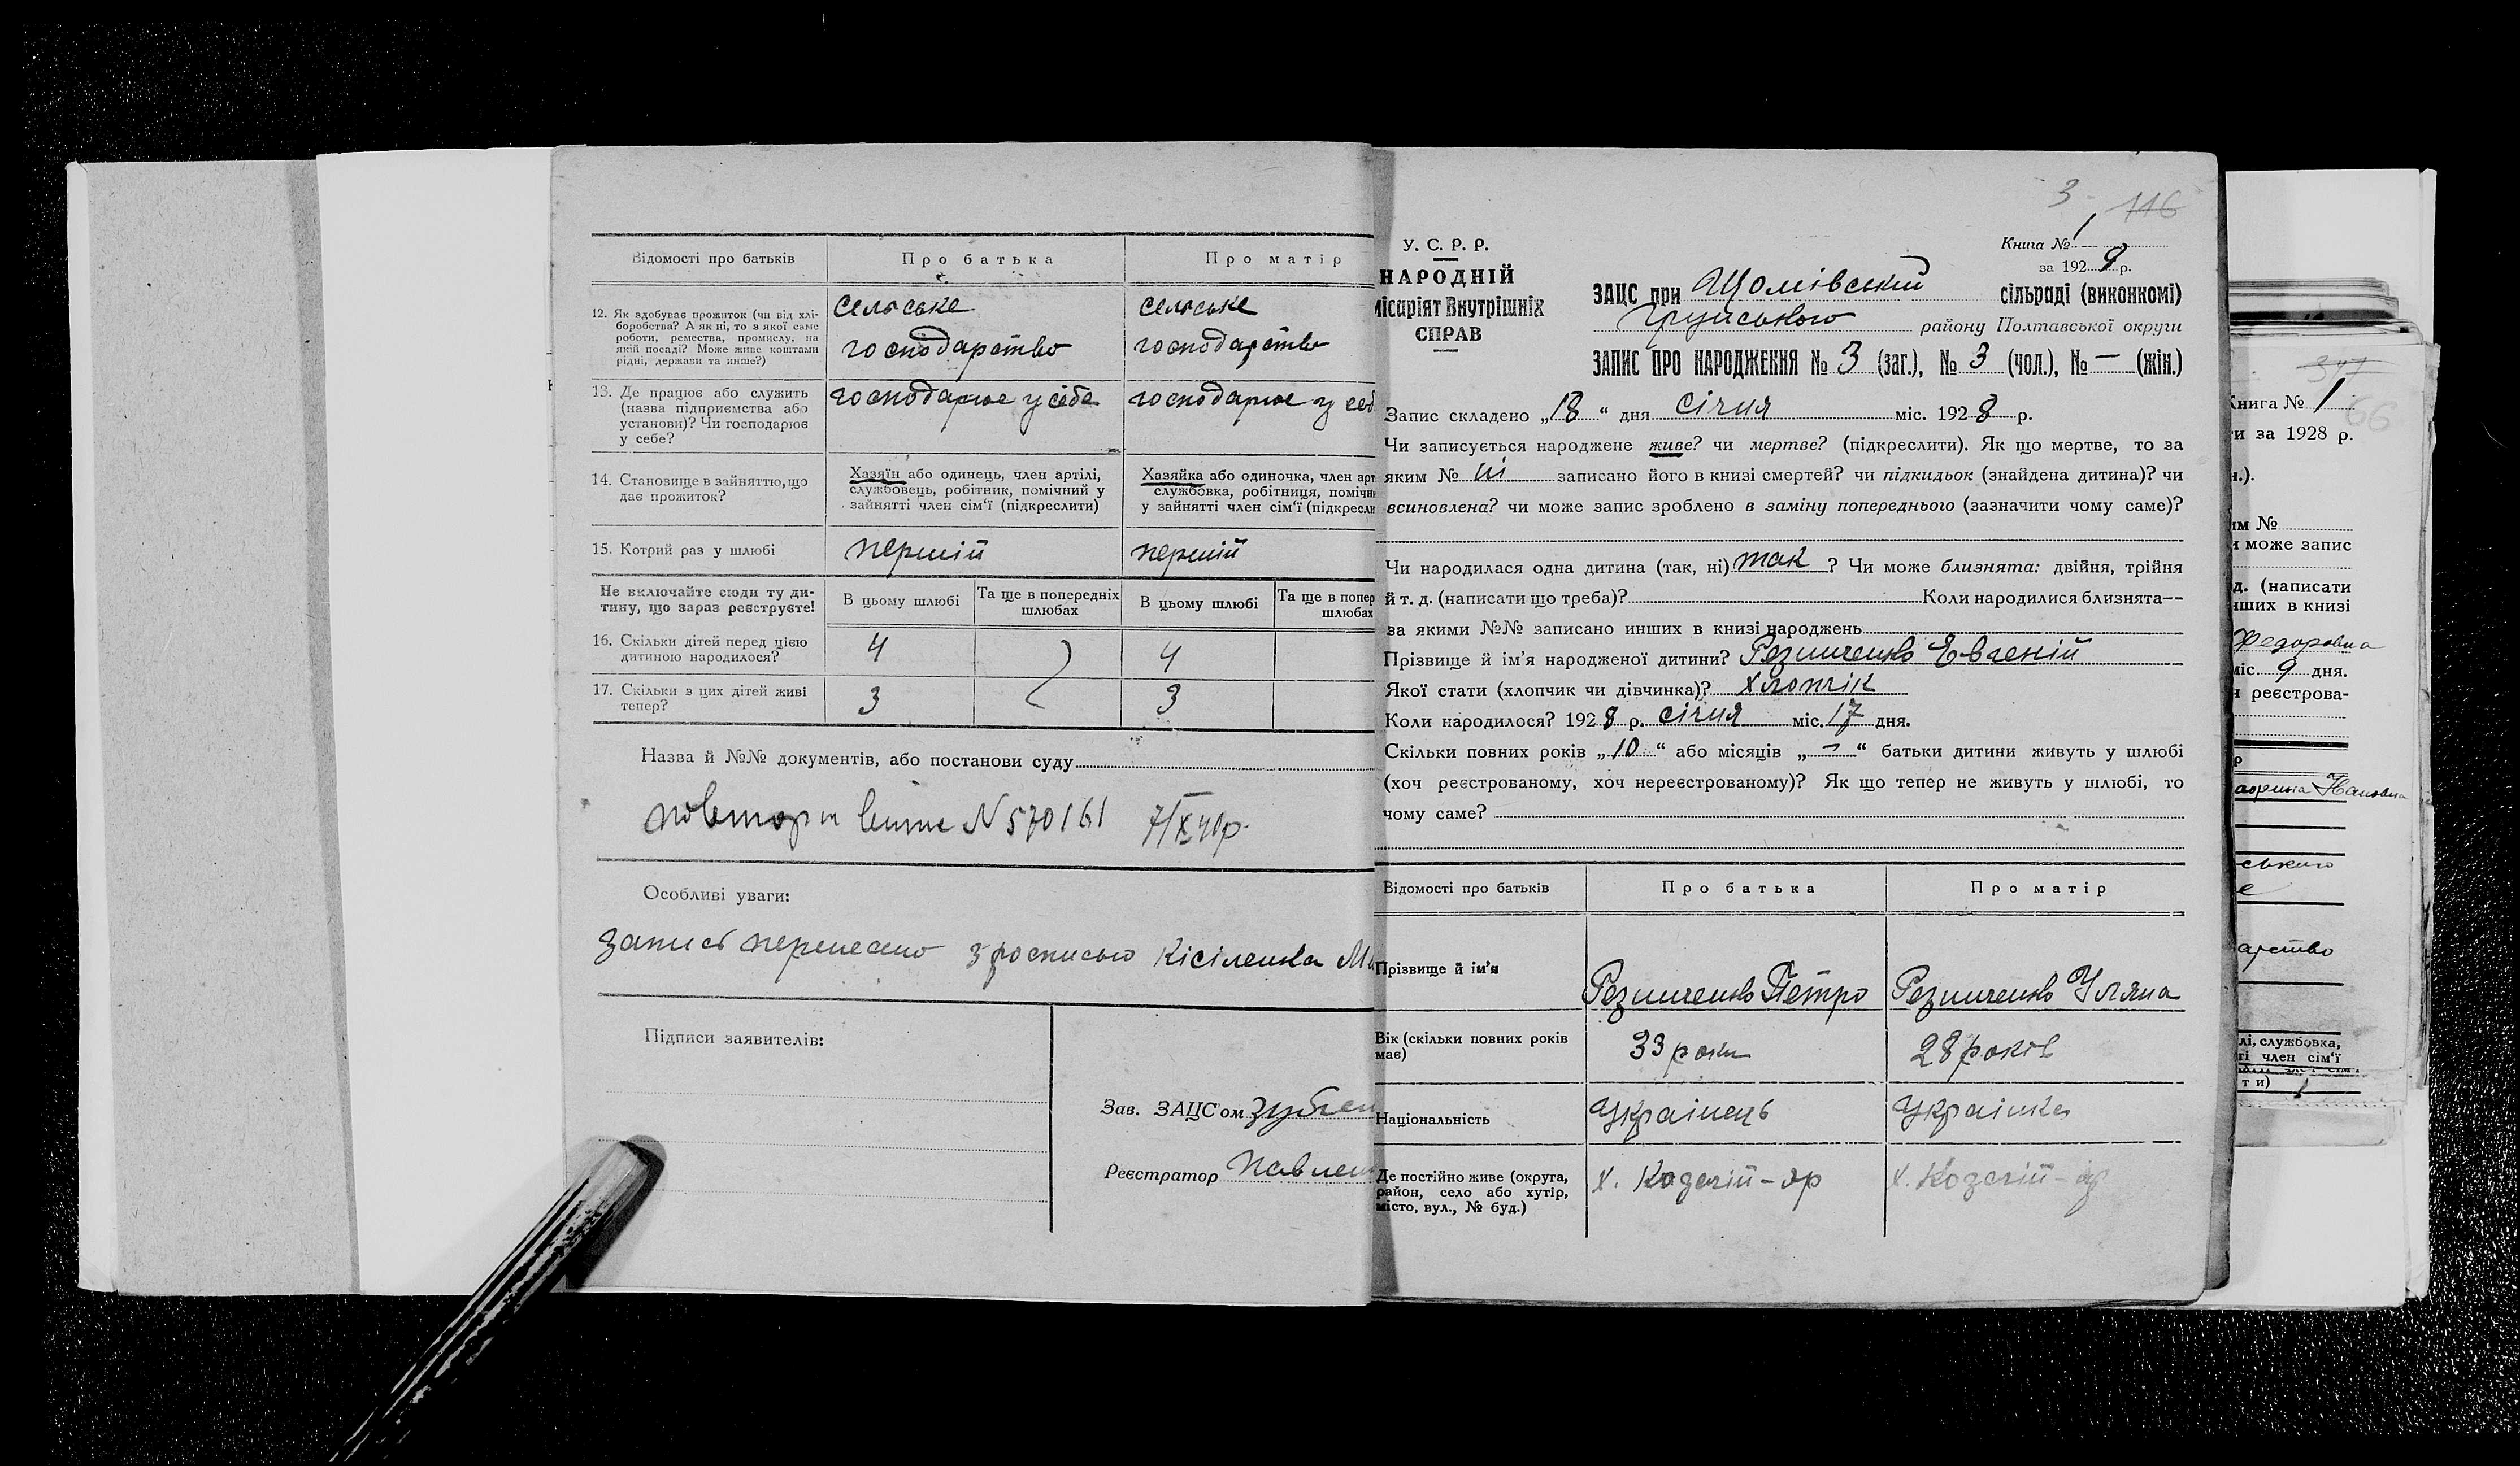 Відомості про батьків
Про батька
Про матір
12. Як здобуває прожиток (чи від хлі-
боробства? А як ні, то з якої саме
роботи, ремества, промислу, на
якій посаді? Може живе коштами
рідні, держави та инше?)
сельське
господарство
сельське
господарство
13. Де працює або служить
(назва підприємства або
установи)? Чи господарює
у себе?
господарює у себе
господарює у себ
14. Становище в зайняттю, що
дає прожиток?
Хазяїн або одинець, член артілі,
службовець, робітник, помічний у
зайнятті член сім'ї (підкреслити)
Хазяйка або одиночка, член арт
службовка, робітниця, помічн
у зайнятті член сім'ї (підкресли
15. Котрий раз у шлюбі
перший
перший
Не включайте сюди ту ди-
тину, що зараз реєструєте!
В цьому шлюбі
Та ще в попередніх
шлюбах
В цьому шлюбі
Та ще в попер
шлюбах
16. Скільки дітей перед цією
дитиною народилося?
4
4
17. Скільки з цих дітей живі
тепер?
3
3
Назва й №№ документів, або постанови суду
повторн N 570161 7/IX 40р.
Особливі уваги:
запись перенесено з росписью Кісіленка
Підписи заявителів:
Зав. ЗАЦС'ом
Реєстратор Павлен
3 116
У. С. Р. Р.
НАРОДНІЙ
місаріят Внутрішніх
СПРАВ
Книга № 1
за 1928 р.
ЗАЦС при Щомівський сільраді (виконкомі)
Грунського району Полтавської округи
ЗАПИС ПРО НАРОДЖЕННЯ № 3 (заг.), № 3 (чол.), № — (жін.)
Запис складено „18“ дня січня міс. 1928 р.
Чи записується народжене живе? чи мертве? (підкреслити). Як що мертве, то за
яким № записано його в книзі смертей? чи підкидьок (знайдена дитина)? чи
всиновлена? чи може запис зроблено в заміну попереднього (зазначити чому саме)?
Чи народилася одна дитина (так, ні) так ? Чи може близнята: двійня, трійня
й т. д. (написати що треба)? Коли народилися близнята—
за якими №№ записано инших в книзі народжень
Прізвище й ім'я народженої дитини? Резниченко Евгеній
Якої стати (хлопчик чи дівчинка)? хлопчік
Коли народилося? 1928 р. січня міс. 17 дня.
Скільки повних років „10“ або місяців „—“ батьки дитини живуть у шлюбі
(хоч реєстрованому, хоч нереєстрованому)? Як що тепер не живуть у шлюбі, то
чому саме?
Відомості про батьків
Про батька
Про матір
Прізвище й ім'я
Резниченко Петро
Резниченко Уляна
Вік (скільки повних років
має)
33 роки
28 років
Національність
Українець
Українка
Де постійно живе (округа,
район, село або хутір,
місто, вул., № буд.)
х. Козачій-яр
х. Козачій-яр
347
Книга № 1
66
и за 1928 р.
н.).
им №
и може запис
д. (написати
нших в книзі
Федоровна
міс. 9 дня.
н реєстрова-
ського
арство
лі, службовка,
ті член сім'ї
ти)